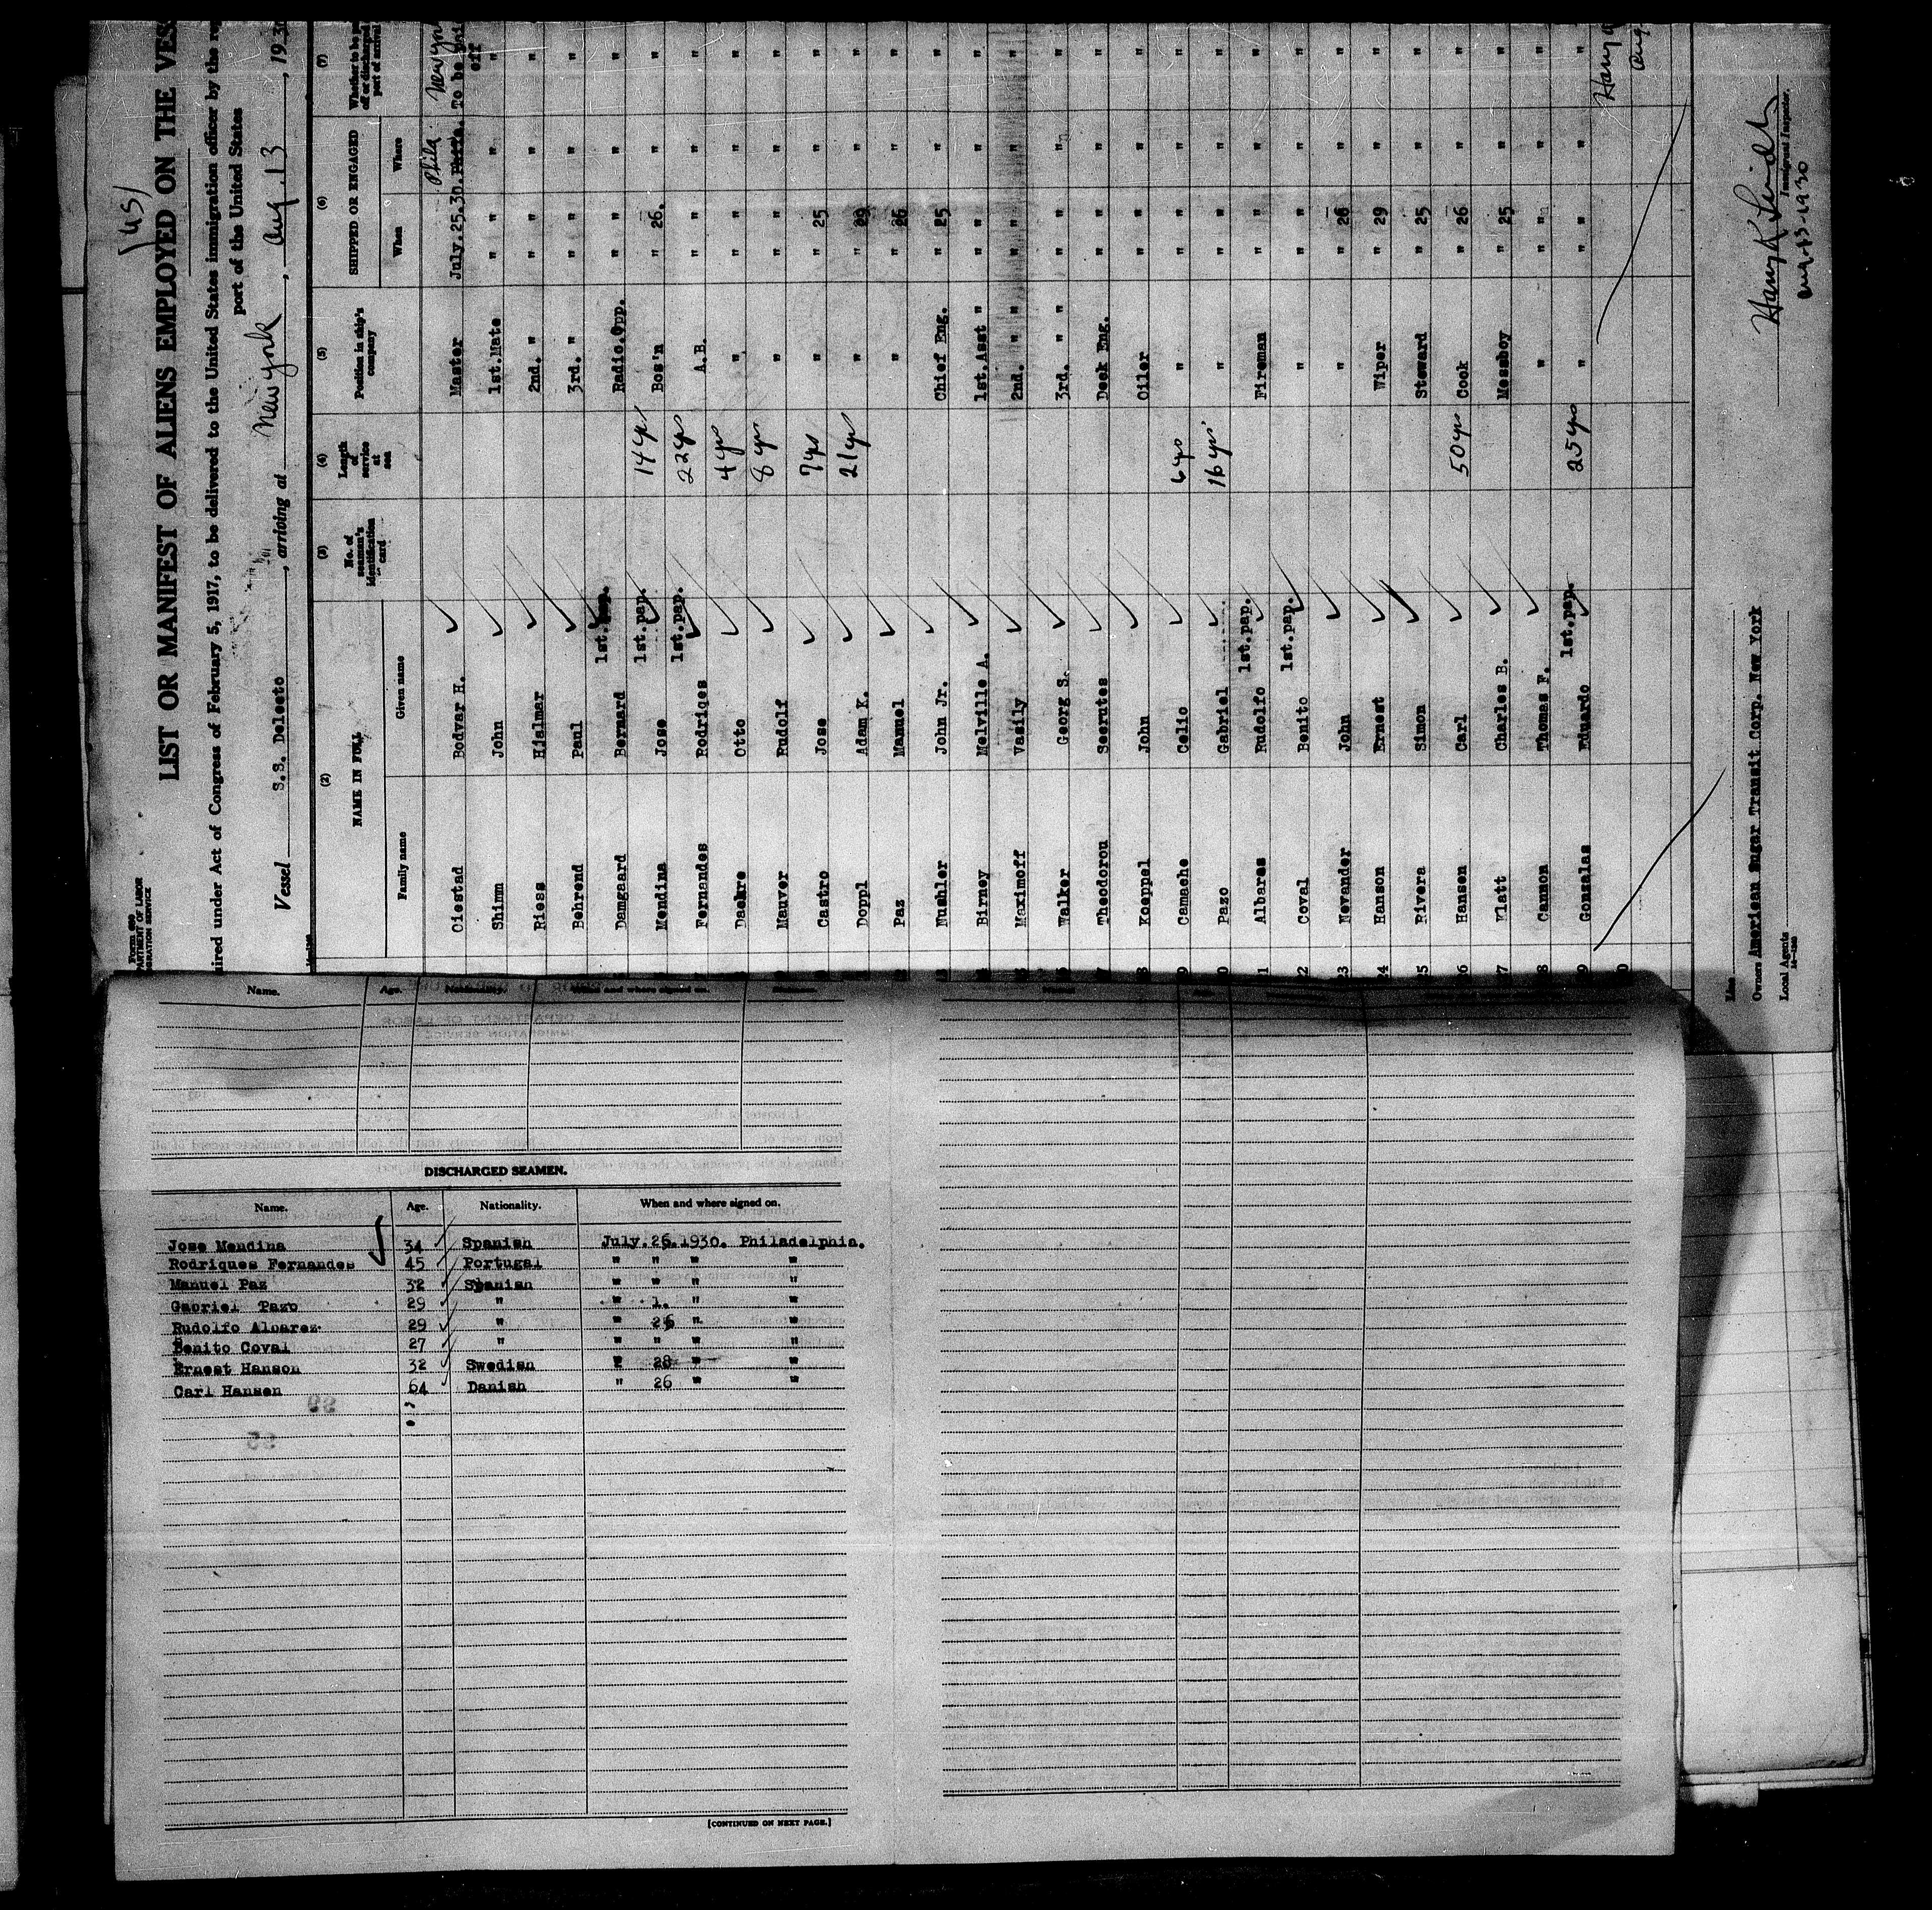 Form 680
LIST OR MANIFEST OF ALIENS EMPLOYED ON THE VES
ired under Act of Congress of February 5, 1917, to be delivered to the United States immigration officer by the
port of the United States
Vessel S.S. Delecto, arriving at New York, Aug. 13, 193
(2) (3) (4) (5) (6) (7)
NAME IN FULL No. of seaman's identification card Length of service at sea Position in ship's company SHIPPED OR ENGAGED
Family name Given name When Where
Phila New York
Ciestad Bodvar H. Master July.25.30. Phila. To be paid off
Shimm John 1st.Mate " " " "
Riess Hjalmar 2nd. " " " " "
Behrend Paul 3rd. " " " " "
Damgaard Bernard 1st.pap. Radio.Opp. " " " "
Mendina Jose 1st.pap. 14 yr Bos'n " 26. " "
Fernandes Rodriqes 1st.pap. 22 yrs A.B. " " " "
Daehre Otto 4 yrs " " " " "
Mauver Rudolf 8 yrs " " " " "
Castro Jose 7 yrs " " 25 " "
Doppl Adam K. 21 yrs " " 29 " "
Paz Manuel " " 26 " "
Mushler John Jr. Chief Eng. " 25 " "
Birney Melville A. 1st.Asst " " " " "
Maximoff Vasily 2nd. " " " " " "
Walker Georg S. 3rd. " " " " " "
Theodorou Seerutes Deck Eng. " " " "
Koeppel John Oiler " " " "
Camache Celio 6 yrs " " " " "
Pazo Gabriel 16 yrs " " " " "
Albares Rudolfo 1st.pap. Fireman " " " "
Coval Benito 1st.pap. " " " " "
Nevander John " " 28 " "
Hanson Ernest Wiper " 29 " "
Rivera Simon Steward " 25 " "
Hansen Carl 50 yrs Cook " 26 " "
Flatt Charles B. Messboy " 25 " "
Cannon Thomas F. " " " " "
Gonzalas Eduardo 1st.pap. 25 yrs " " " " "
Line
Owners American Sugar Transit Corp. New York
Local Agents
Immigrant Inspector.
Aug 13-1930
Name. Age. Nationality. When and where signed on.
DISCHARGED SEAMEN.
Name. Age. Nationality. When and where signed on.
Jose Mendina 34 Spanish July.26.1930. Philadelphia.
Rodriques Fernandes 45 Portugal " " " "
Manuel Paz 32 Spanish " " " "
Gabriel Pazo 29 " " 1. " "
Rudolfo Albares 29 " " 26 " "
Benito Coval 27 " " " " "
Ernest Hanson 32 Swedish " 28 " "
Carl Hansen 64 Danish " 26 " "
[CONTINUED ON NEXT PAGE.]